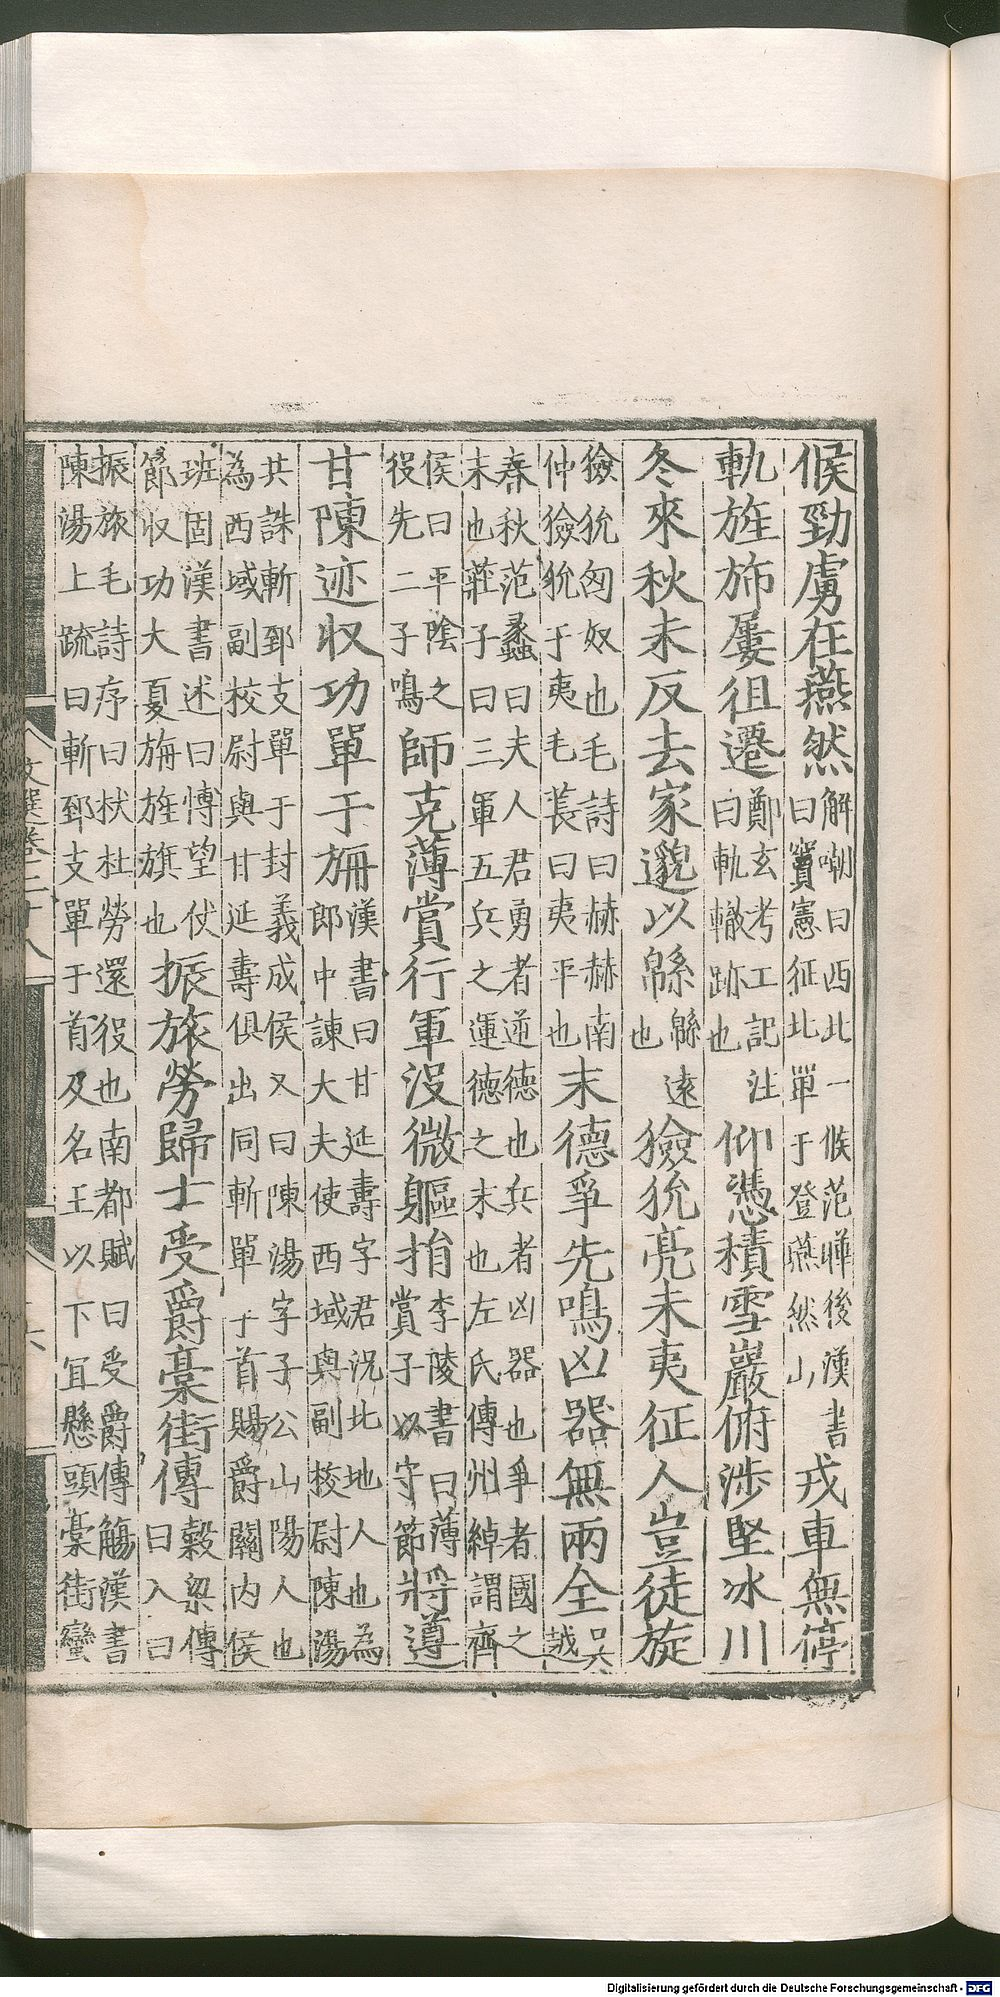 候勁虜在燕然解嘲曰西北一候范曄後漢書曰竇憲征北單于登燕然山戎車無停
軌旌旆屢徂遷鄭玄考工記注曰軌轍跡也仰憑積雪巖俯涉堅冰川
冬來秋未反去家邈以緜緜遠也獫狁亮未夷征人豈徒旋
獫狁匈奴也毛詩曰赫赫南仲獫狁于夷毛萇曰夷平也末德爭先鳴凶器無兩全吳越
春秋范蠡曰夫人君勇者逆德也兵者凶器也爭者國之末也莊子曰三軍五兵之運德之末也左氏傳州綽謂齊
侯曰平陰之役先二子鳴師克薄賞行軍沒微軀捐李陵書曰薄賞子以守節將遵
甘陳迹收功單于旃漢書曰甘延壽字君況北地人也為郎中諫大夫使西域與副校尉陳湯
共誅斬郅支單于封義成侯又曰陳湯字子公山陽人也為西域副校尉與甘延壽俱出同斬單于首賜爵關內侯
班固漢書述曰博望仗節收功大夏旃旌旗也振旅勞歸士受爵藁街傳穀梁傳曰入曰
振旅毛詩序曰杕杜勞還役也南都賦曰受爵傳觴漢書陳湯上疏曰斬郅支單于首及名王以下宜懸頭藁街蠻
文選卷二十八
Digitalisierung gefördert durch die Deutsche Forschungsgemeinschaft - DFG